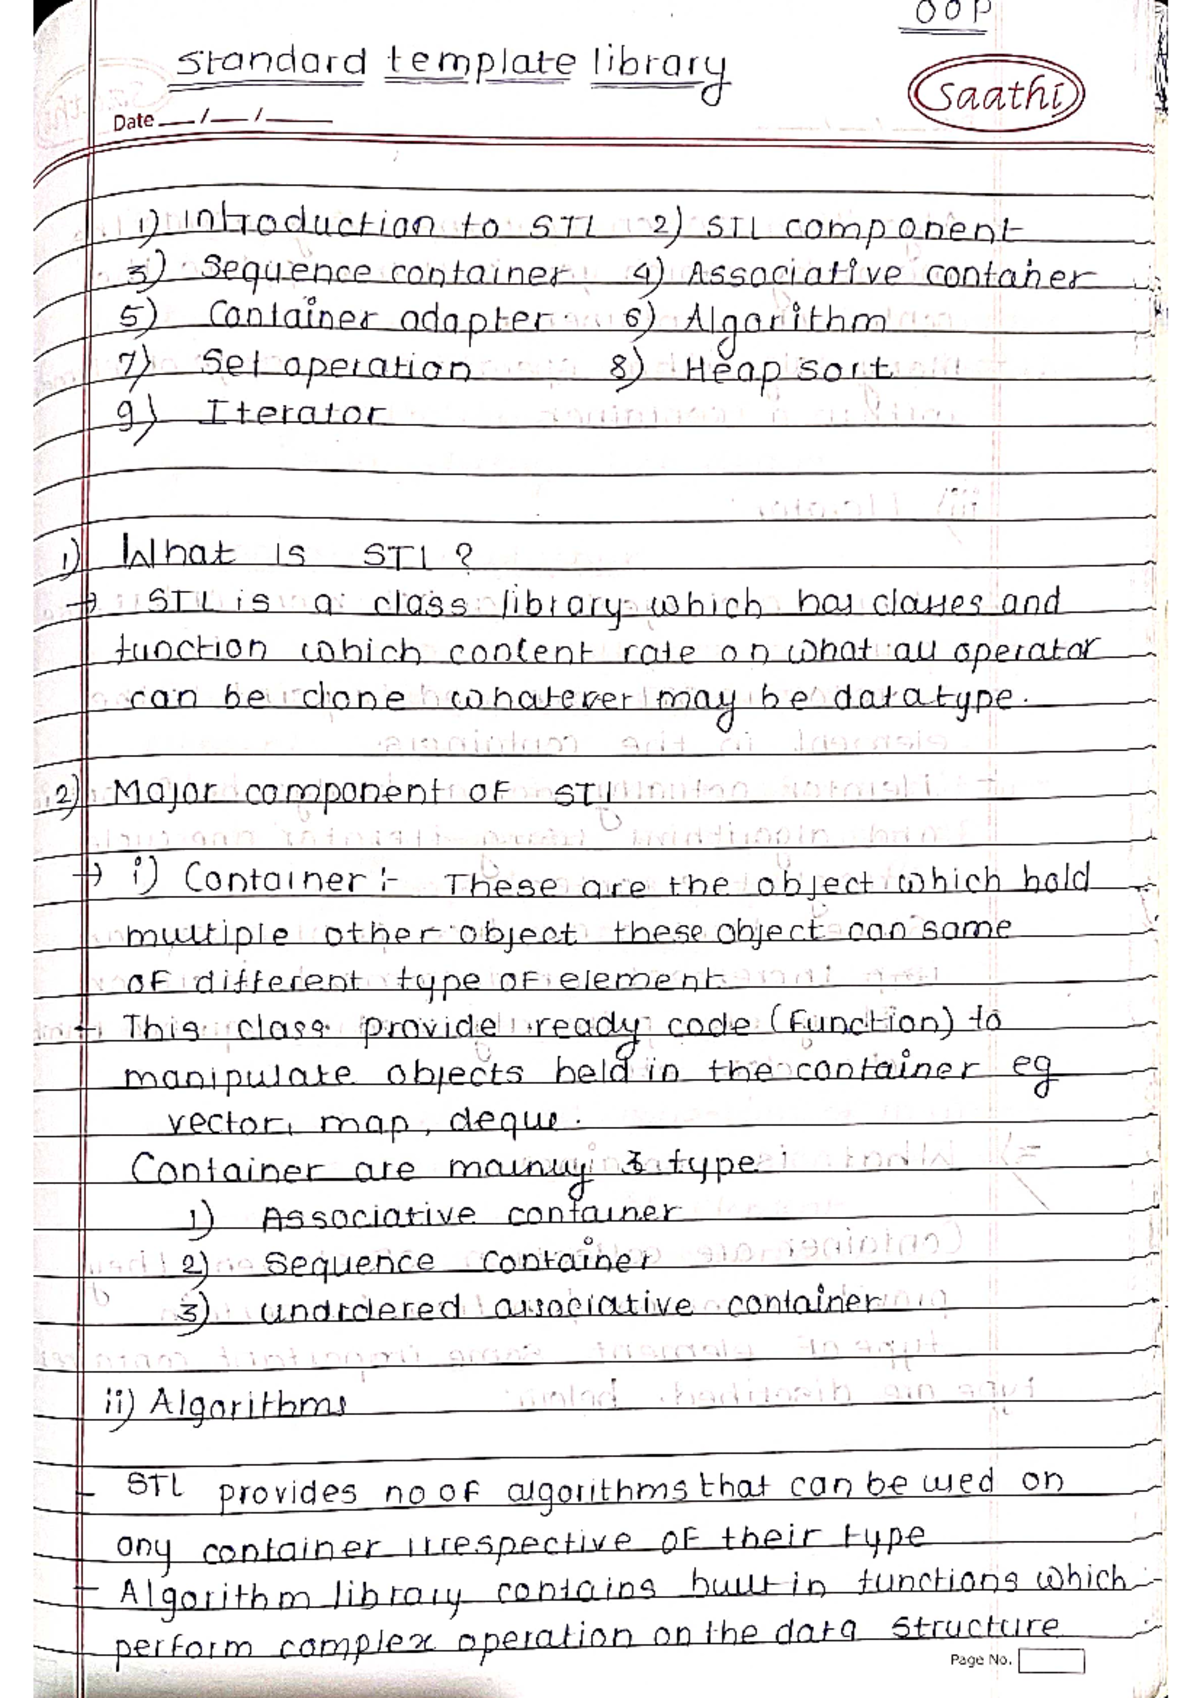 OOP
Standard template library
Saathi
Date __/__/____
1) Introduction to STL 2) STL component
3) Sequence container 4) Associative contaner
5) Container adapter 6) Algorithm
7) Set operation 8) Heap sort
9) Iterator
1) What is STL?
→ STL is a class library which has classes and
function which content rate on what all operator
can be done whatever may be datatype.
2) Major component of STL
→ i) Container :- These are the object which hold
multiple other object these object can same
of different type of element
- This class provide ready code (function) to
manipulate objects held in the container eg
vector, map, deque.
Container are mainly 3 type :
1) Associative container
2) Sequence container
3) undrdered associative container
ii) Algorithms
- STL provides no of algorithms that can be used on
any container irrespective of their type
- Algorithm library contains built in functions which
perform complex operation on the data structure
Page No.